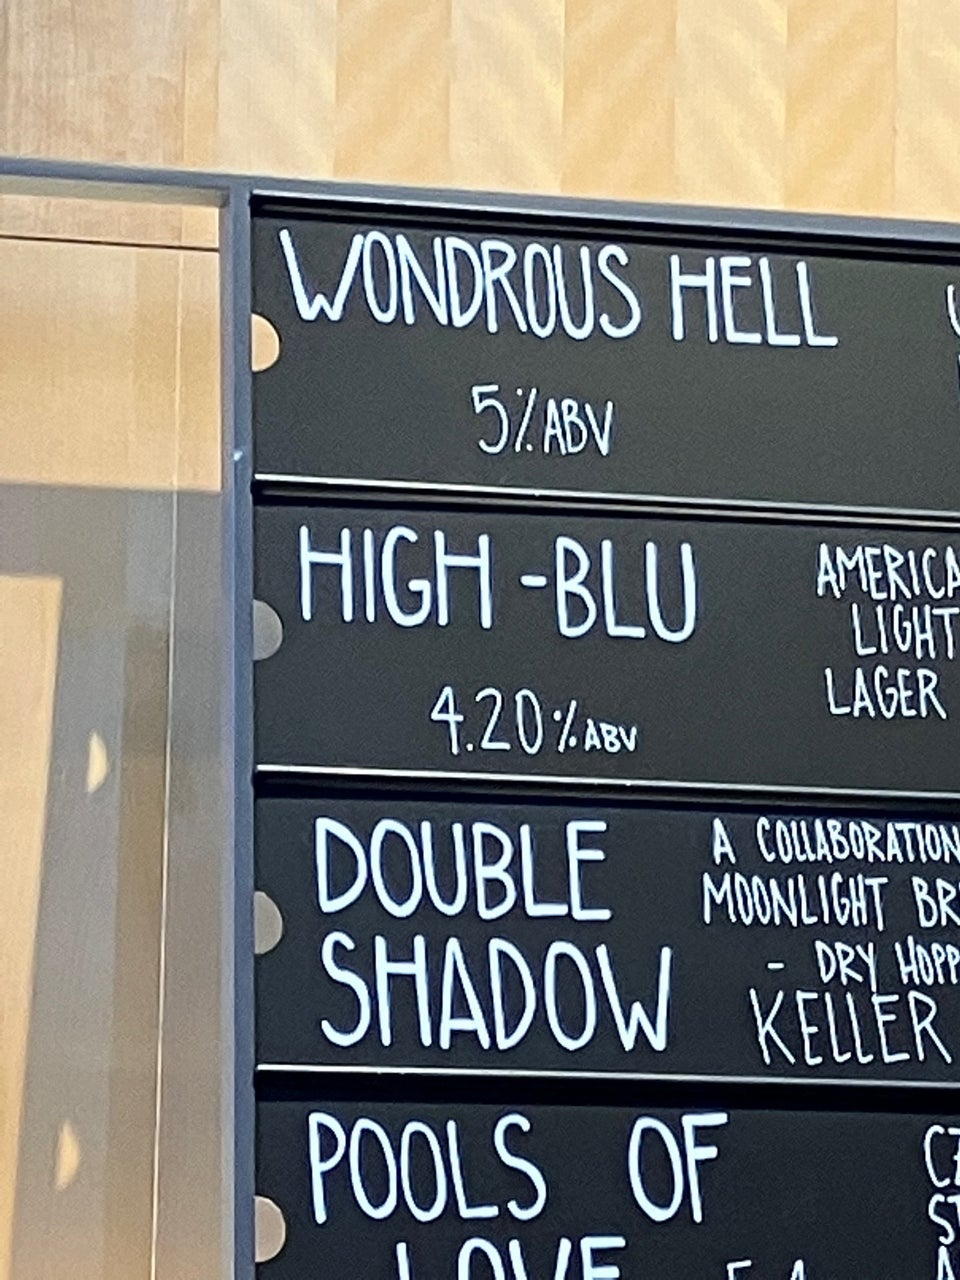 WONDROUS HELL
5% ABV
HIGH-BLU
4.20% ABV
AMERICA
LIGHT
LAGER
DOUBLE
SHADOW
A COLLABORATION
MOONLIGHT BR
- DRY HOPP
KELLER
POOLS OF
LOVE